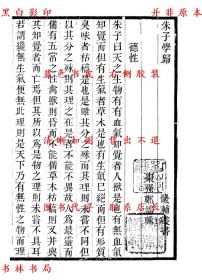 黑白影印 并非原本
朱子學歸
畿輔叢書
棗強鄭端輯
德性
朱子曰天之生物有有血氣知覺者人獸是也有無血氣
知覺而但有生氣者草木是也有生氣已絕而但有形質
臭味者枯槁是也是雖其分之殊而其理則未嘗不同但
以其分之殊則其理之在是者不能不異故人爲最靈而
備有五常之性禽獸則昏而不能備草木枯槁則又并與
其知覺者而亡焉但其所以爲是物之理則未嘗不具耳
若謂纔無生氣便無此理則是天下乃有無性之物而理
书林书局